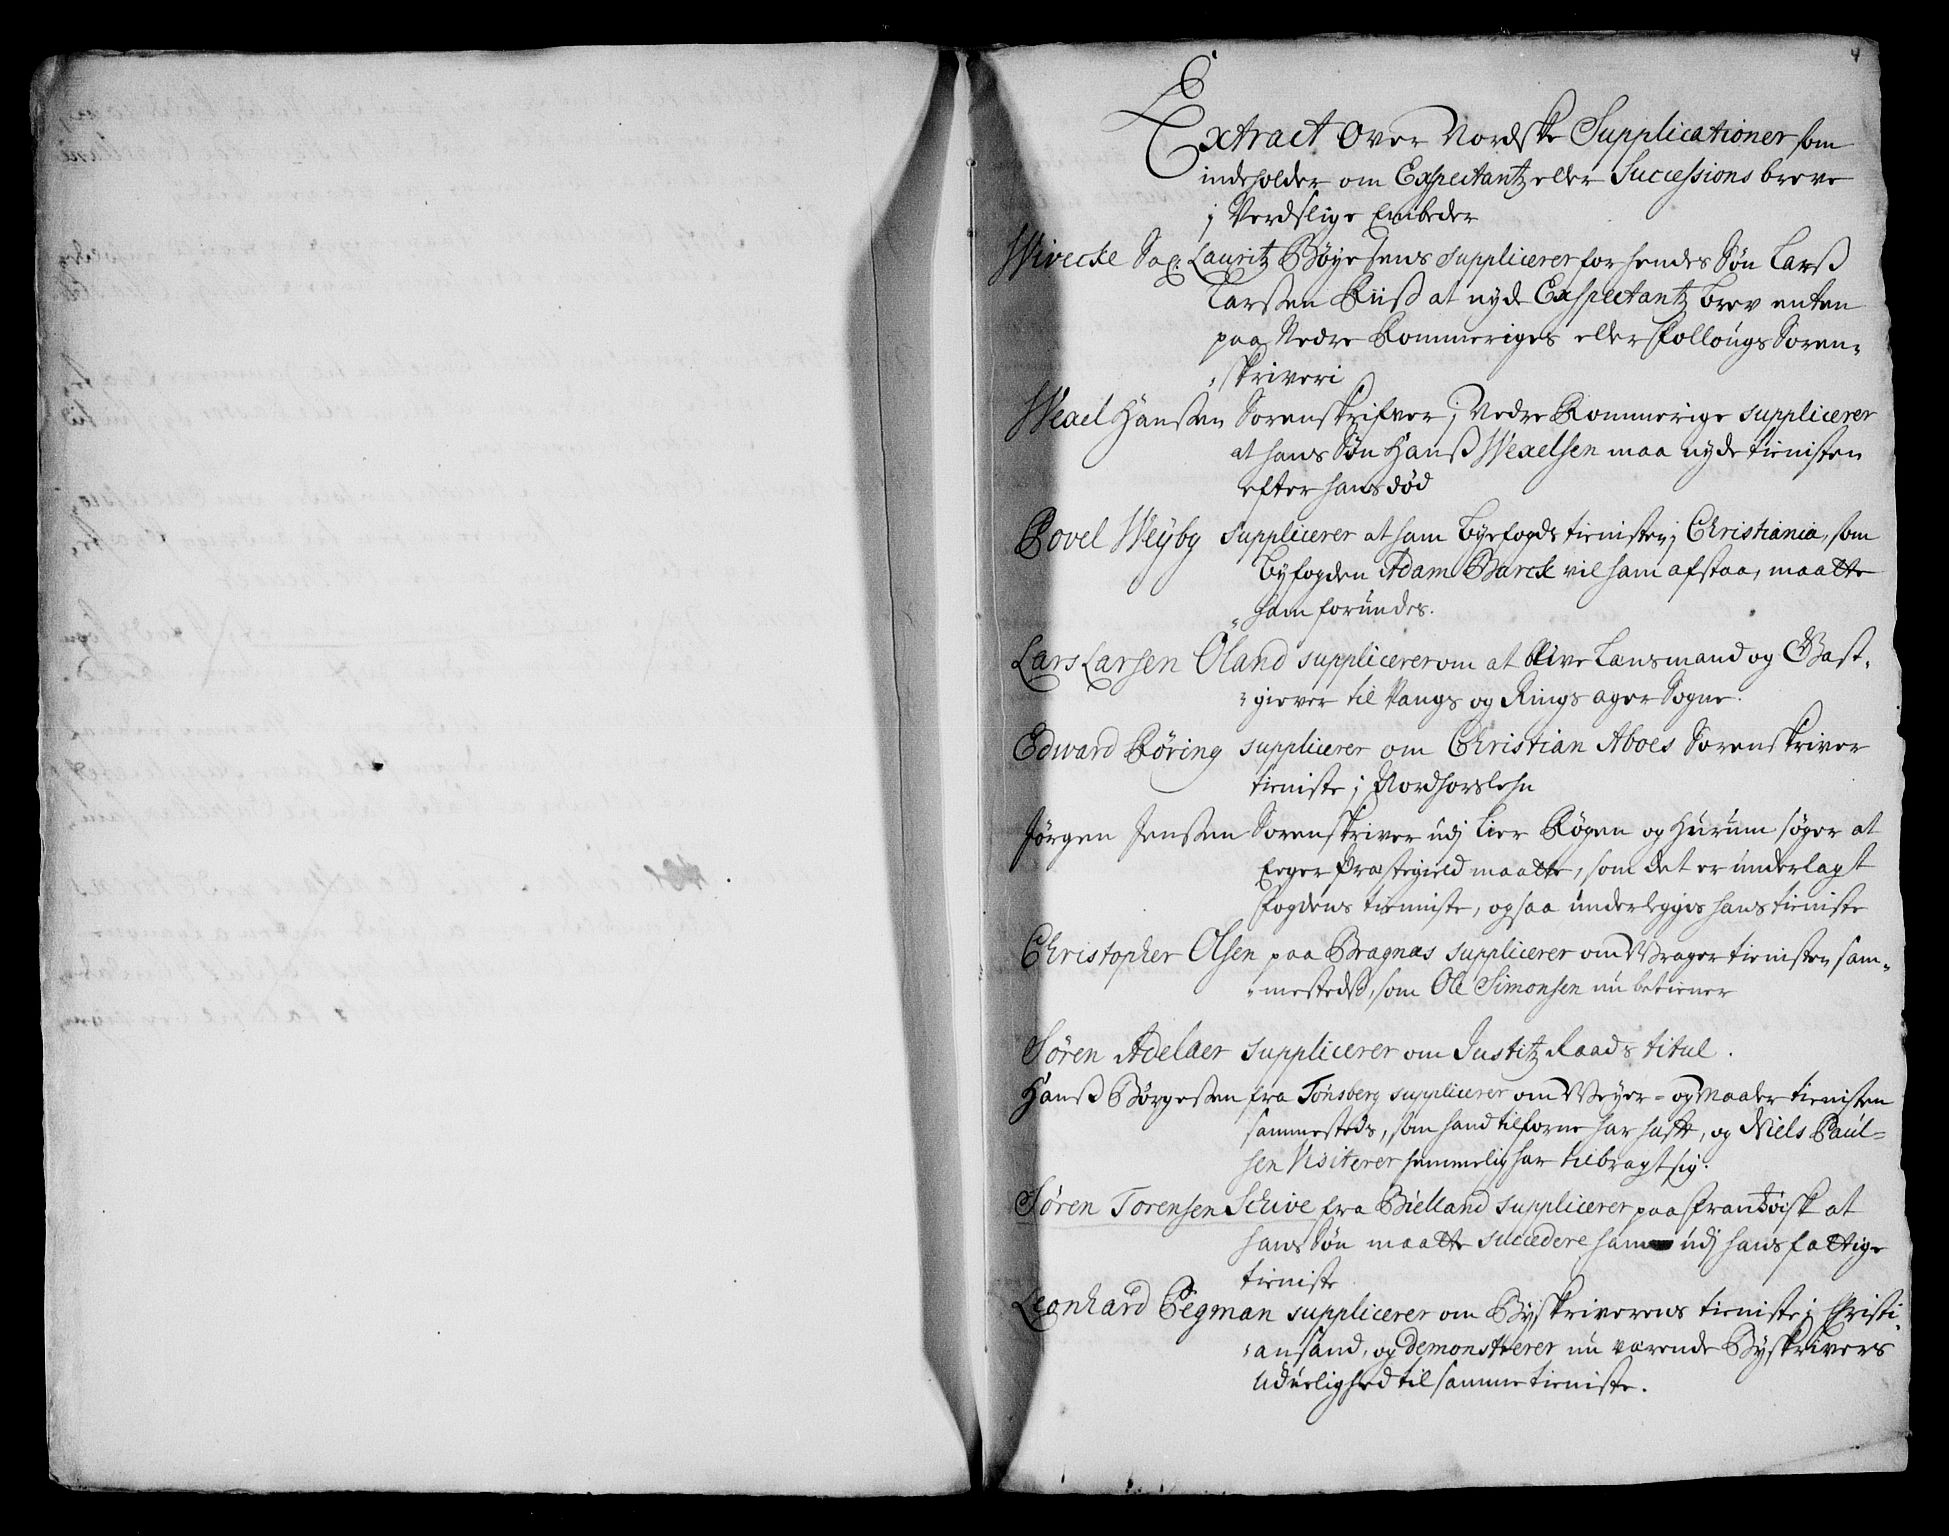 Extract over Nordske Supplicationer som
indeholder om Expectantz eller Successions breve
i Verdslige Embeder
Wivecke Sal: Lauritz Bøyesens supplicerer for hendes Søn Larß
Larßen Riiß at nyde Expectantz brev enten
paa Nedre Rommeriges eller Follougs Soren-
skriveri
Wexel Hansen Sorenskrifver i Nedre Rommerige supplicerer
at hans Søn Hanß Wexelsen maa nyde tienisten
efter hans død
Povel Weyby supplicerer at ham byefogds tienisten i Christiania, som
byfogden Adam Barck vil ham afstaa, maatte
ham forundes.
Lars Larsen Oland supplicerer om at blive Lænsmand og Gæst-
giever til Vangs og Ringsager Sogne.
Edward Røring supplicerer om Christian Aboes Sorenskriver
tieniste i Nordhorslehn
Jørgen Jensen Sorenskriver udj Lier Røgen og Hurum søger at
Eeger Præstegield maatte, som det er underlagt
fogdens tienniste, ogsaa underlegges hans tieniste
Christopher Olsen paa Bragnæs supplicerer om Vrager tienisten sam-
mesteds, som Ole Simonsen nu betiener
Søren Adelaer supplicerer om Justitz Raads titul.
Hanß Børgesen fra Tønsberg supplicerer om Veyer- og Maaler tienisten
sammesteds, som hand tilforne har hafft, og Niels Paul-
sen Visiterer hemmelig har tilbragt sig.
Søren Sorensen Schive fra Bielland supplicerer paa Frantzøisk at
hans Søn maatte succedere ham udj hans fattige
tieniste
Leonhard Pegman supplicerer om Byskriverens tieniste i Christi-
ansand, og demonstrerer nu værende Byskrivers
Uduelighed til samme tieniste.